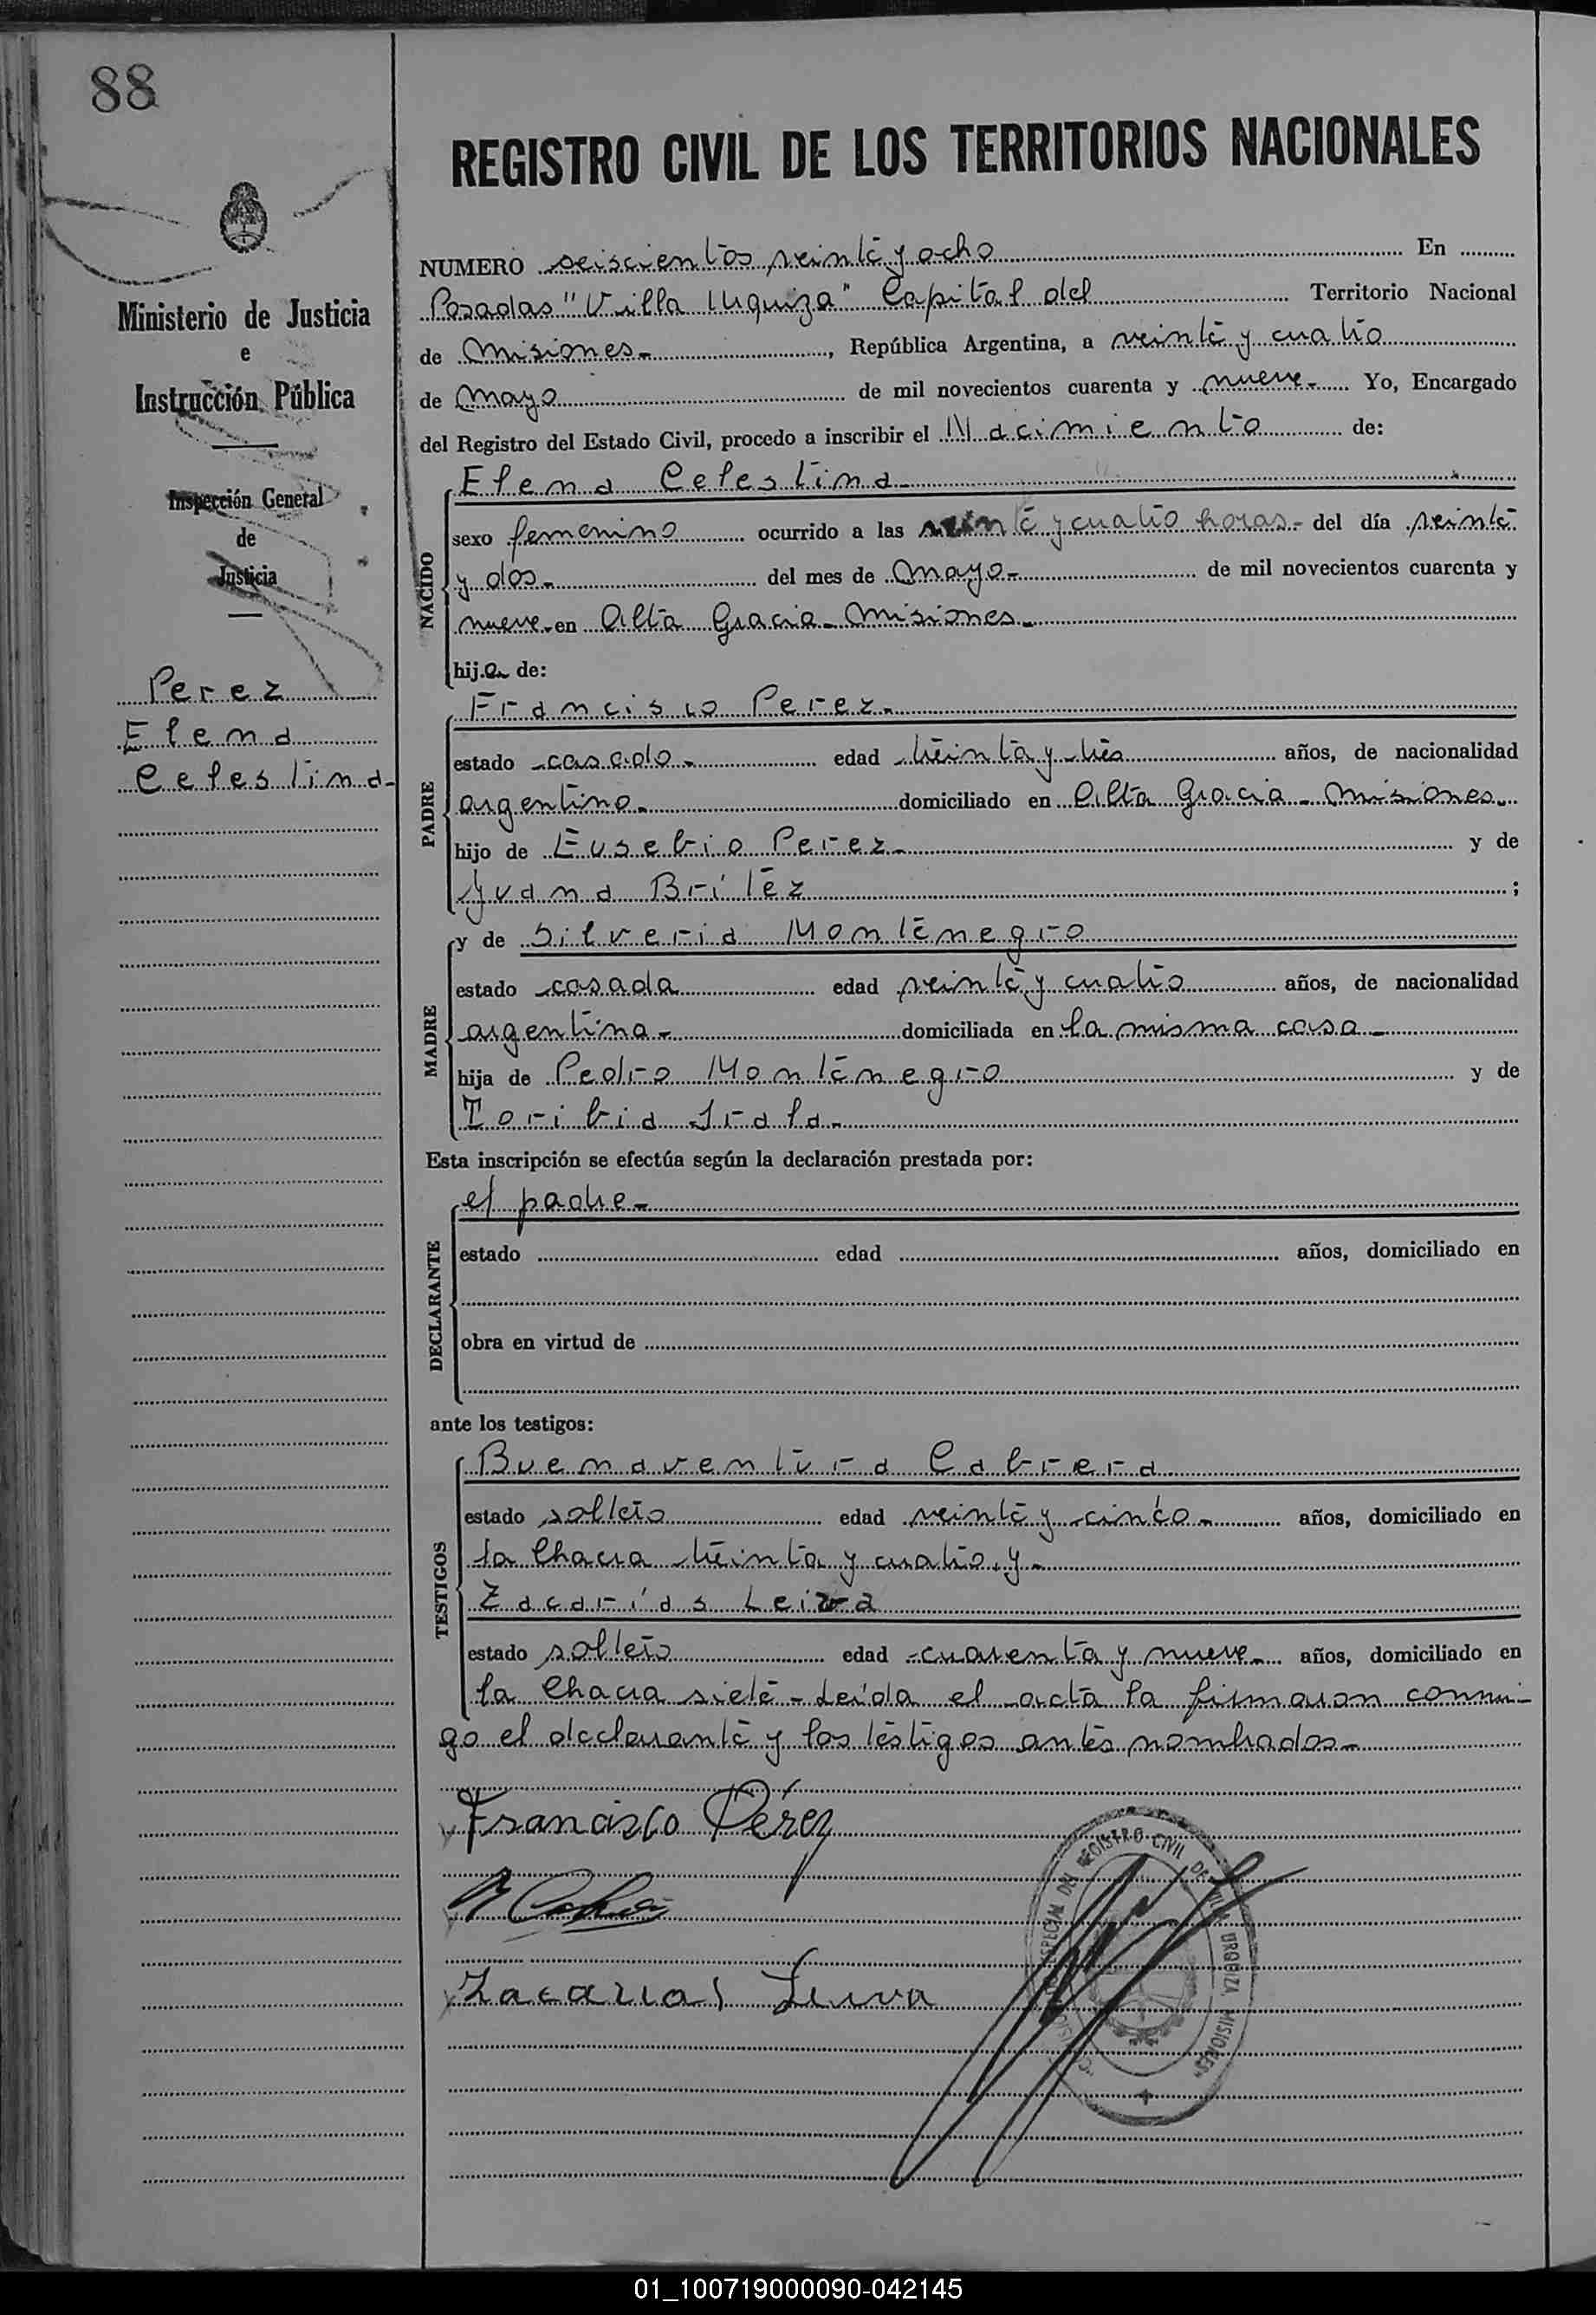 88
REGISTRO CIVIL DE LOS TERRITORIOS NACIONALES
Ministerio de Justicia
e
Instrucción Pública
Inspección General
de
Justicia
Perez
Elena
Celestina-
NUMERO seiscientos veinte y ocho En
Posadas "Villa Urquiza" Capital del Territorio Nacional
de Misiones-, República Argentina, a veinte y cuatro
de Mayo de mil novecientos cuarenta y nueve- Yo, Encargado
del Registro del Estado Civil, procedo a inscribir el Nacimiento de:
NACIDO
Elena Celestina-
sexo femenino ocurrido a las veinte y cuatro horas- del día veinte
y dos- del mes de Mayo- de mil novecientos cuarenta y
nueve- en Alta Gracia- Misiones-
hija de:
PADRE
Francisco Perez-
estado casado- edad treinta y tres años, de nacionalidad
argentino- domiciliado en Alta Gracia- Misiones-
hijo de Eusebio Perez- y de
Juana Brítez ;
MADRE
y de Silveria Montenegro
estado casada edad veinte y cuatro años, de nacionalidad
argentina- domiciliada en la misma casa-
hija de Pedro Montenegro y de
Toribia Irala-
Esta inscripción se efectúa según la declaración prestada por:
DECLARANTE
el padre-
estado edad años, domiciliado en
obra en virtud de
ante los testigos:
TESTIGOS
Buenaventura Cabrera
estado soltero edad veinte y cinco- años, domiciliado en
la Chacra treinta y cuatro, y-
Zacarías Leiva
estado soltero edad cuarenta y nueve- años, domiciliado en
la Chacra siete- Leída el acta la firmaron conmi-
go el declarante y los testigos antes nombrados-
Francisco Pérez
Zacarias Leiva
DEL REGISTRO CIVIL DE VILLA URQUIZA MISIONES
01_100719000090-042145